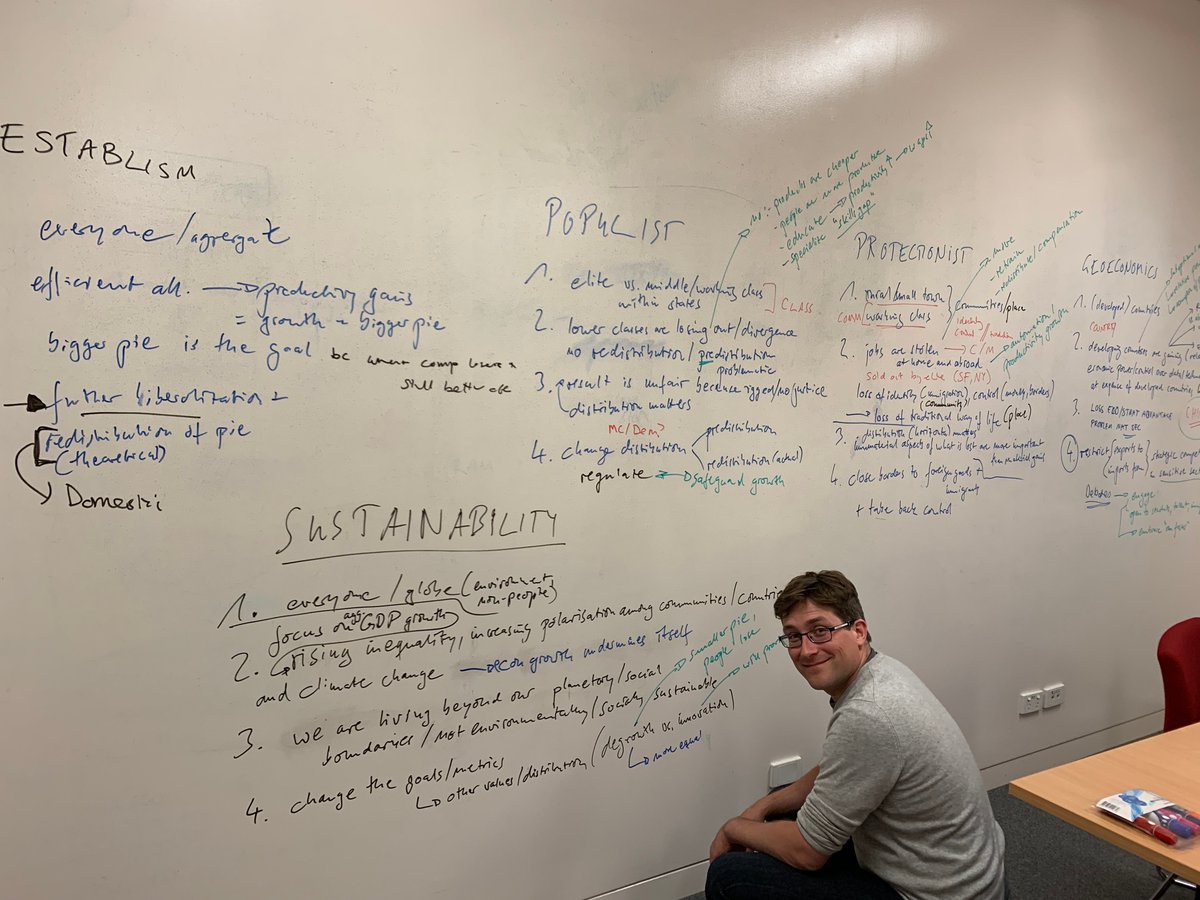 ESTABLISM
everyone/agregate
efficient all. → productivity gains
= growth = bigger pie
bigger pie is the goal bc
still better off
further liberalization =
redistribution of pie
(theoretical)
Domestic
POPULIST
1. elite vs. middle/working class
within states
CLASS
2. lower classes are losing out/divergence
no redistribution/predistribution
problematic
3. result is unfair because rigged/no justice
distribution matters
MC/Dem?
4. change distribution
predistribution
redistribution (actual)
regulate → safeguard growth
no: products are cheaper
- people are more productive
- educate → productivity ↑ → wage ↑
- specialise "skills gap"
PROTECTIONIST
- move
- retrain
- redistribute/compensation
1. rural/small town
COMM working class
communities/place
2. jobs are stolen → C/M
at home and abroad
automation
productivity growth
sold out by elite (SF, NY)
loss of identity (immigration), control (money, borders)
(community)
→ loss of traditional way of life (place)
3. distribution (horizontal) matters
immaterial aspects of what is lost are more important
than material gains
4. close borders to foreign goods +
immigrants
+ take back control
GEOECONOMICS
1. (developed) countries
COUNTRY
2. developing countries are gaining
economic power/control over
at expense of developed countries
3. LOSS ECO/START ADVANTAGE
PROBLEM NAT SEC
4. restrict (exports to)
(imports from)
Debates → engage
SUSTAINABILITY
1. everyone/globe (environment
non-people)
focus on agg GDP growth
2. rising inequality, increasing polarisation among communities/countries
and climate change → econ growth undermines itself
3. we are living beyond our planetary/social
boundaries/not environmentally/socially sustainable
→ smaller pie,
people lose
4. change the goals/metrics
→ other values/distribution (degrowth vs. innovation)
→ more equal